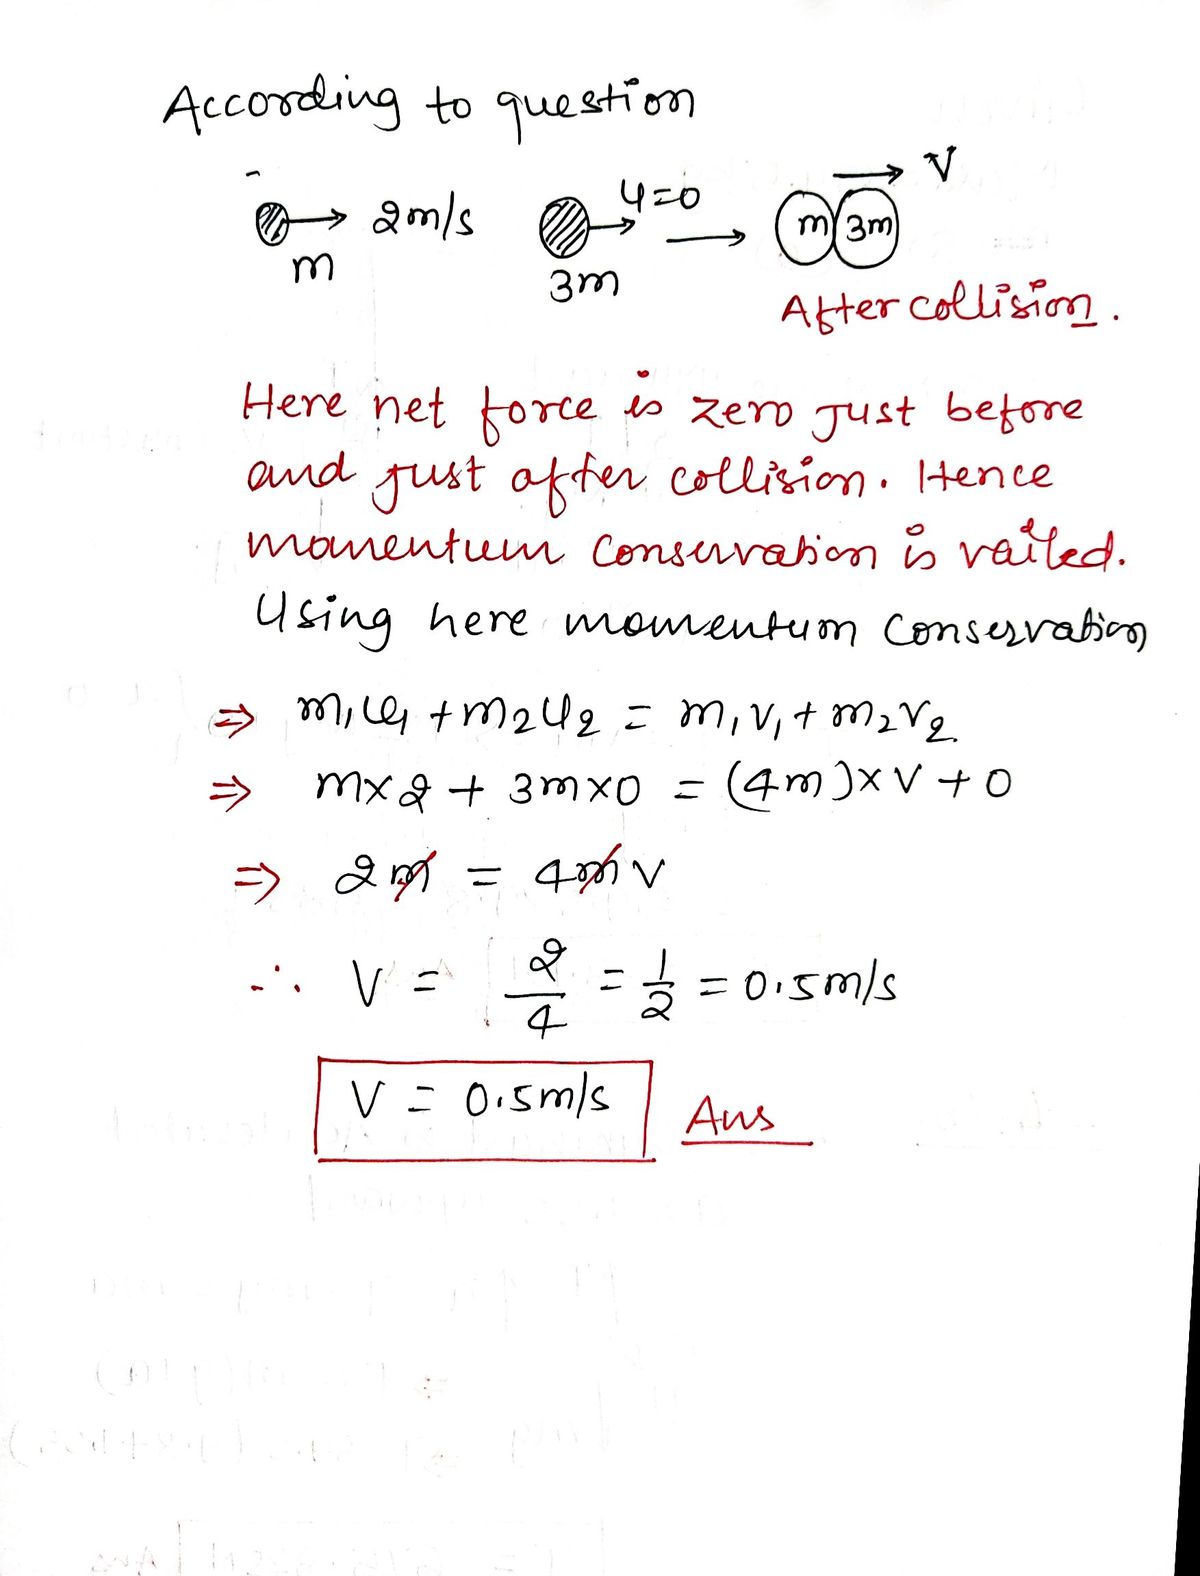 According to question
m → 2m/s
3m → u=0 →
m 3m → V
After collision.
Here net force is zero just before
and just after collision. Hence
momentum conservation is vailed.
Using here momentum conservation
⇒ m₁u₁ + m₂u₂ = m₁v₁ + m₂v₂
⇒ m×2 + 3m×0 = (4m)×V + 0
⇒ 2m = 4mv
∴ V = 2/4 = 1/2 = 0.5m/s
V = 0.5m/s Ans